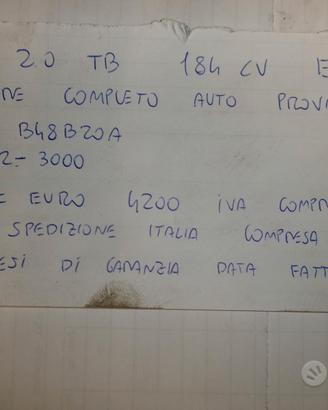 2.0 TB 184 CV E
NE COMPLETO AUTO PROVI
B48B20A
2-3000
E EURO 4200 IVA COMPR
SPEDIZIONE ITALIA COMPRESA
ESI DI GARANZIA DATA FATT